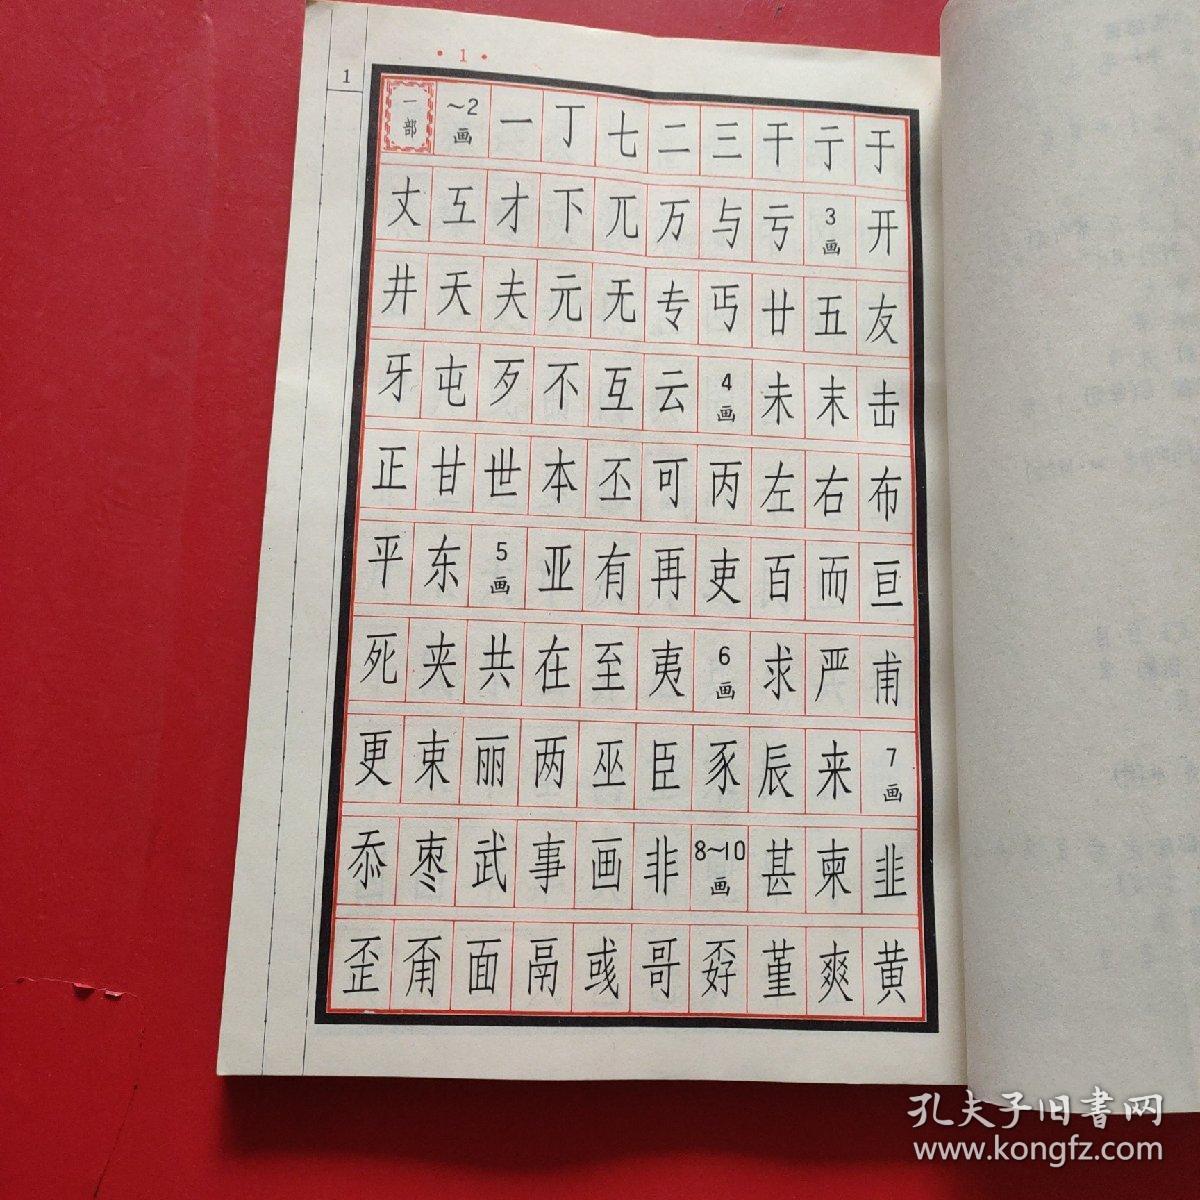 ·1·
1
一部 ~2画 一 丁 七 二 三 干 亍 于
丈 互 才 下 兀 万 与 亏 3画 开
井 天 夫 元 无 专 丐 廿 五 友
牙 屯 歹 不 互 云 4画 未 末 击
正 甘 世 本 丕 可 丙 左 右 布
平 东 5画 亚 有 再 吏 百 而 亘
死 夹 共 在 至 夷 6画 求 严 甫
更 束 丽 两 巫 臣 豕 辰 来 7画
忝 枣 武 事 画 非 8~10画 甚 柬 韭
歪 甭 面 鬲 彧 哥 孬 堇 爽 黄
孔夫子旧书网
www.kongfz.com